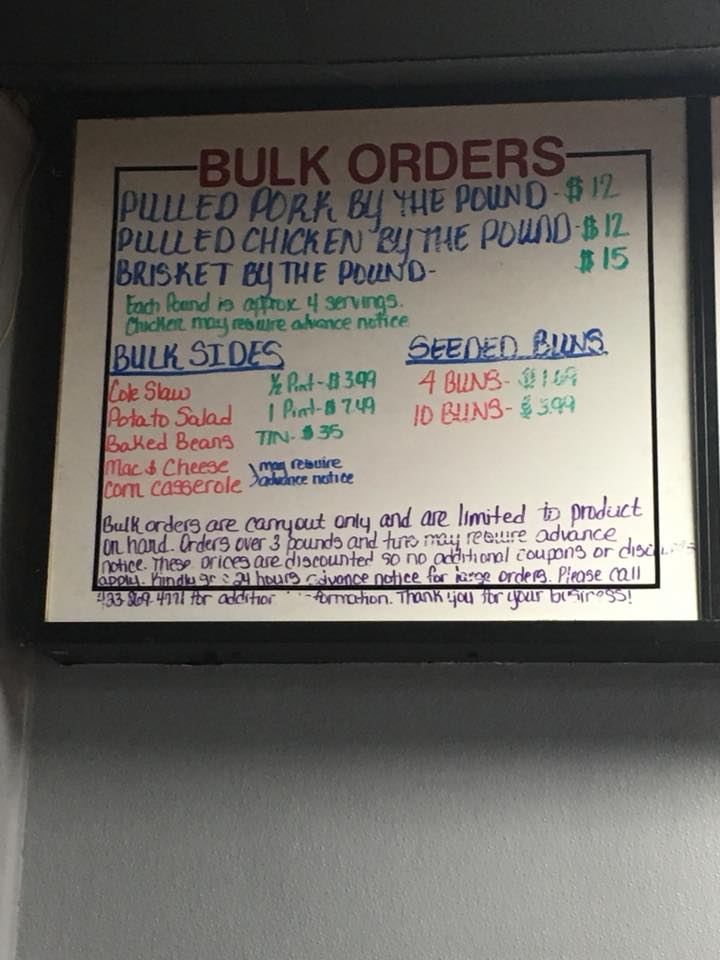 BULK ORDERS
PULLED PORK BY THE POUND - $12
PULLED CHICKEN BY THE POUND - $12
BRISKET BY THE POUND - $15
Each Pound is approx 4 servings.
Chicken may require advance notice
BULK SIDES
Cole Slaw
Potato Salad
Baked Beans
Mac & Cheese
corn casserole
½ Pint - $3.99
1 Pint - $7.49
TIN - $35
may require
advance notice
SEEDED BUNS
4 BUNS - $1.69
10 BUNS - $3.99
Bulk orders are carryout only and are limited to product
on hand. Orders over 3 pounds and tins may require advance
notice. These prices are discounted so no additional coupons or
apply. Kindly 24 hours advance notice for large orders. Please call
for Thank you for your business!